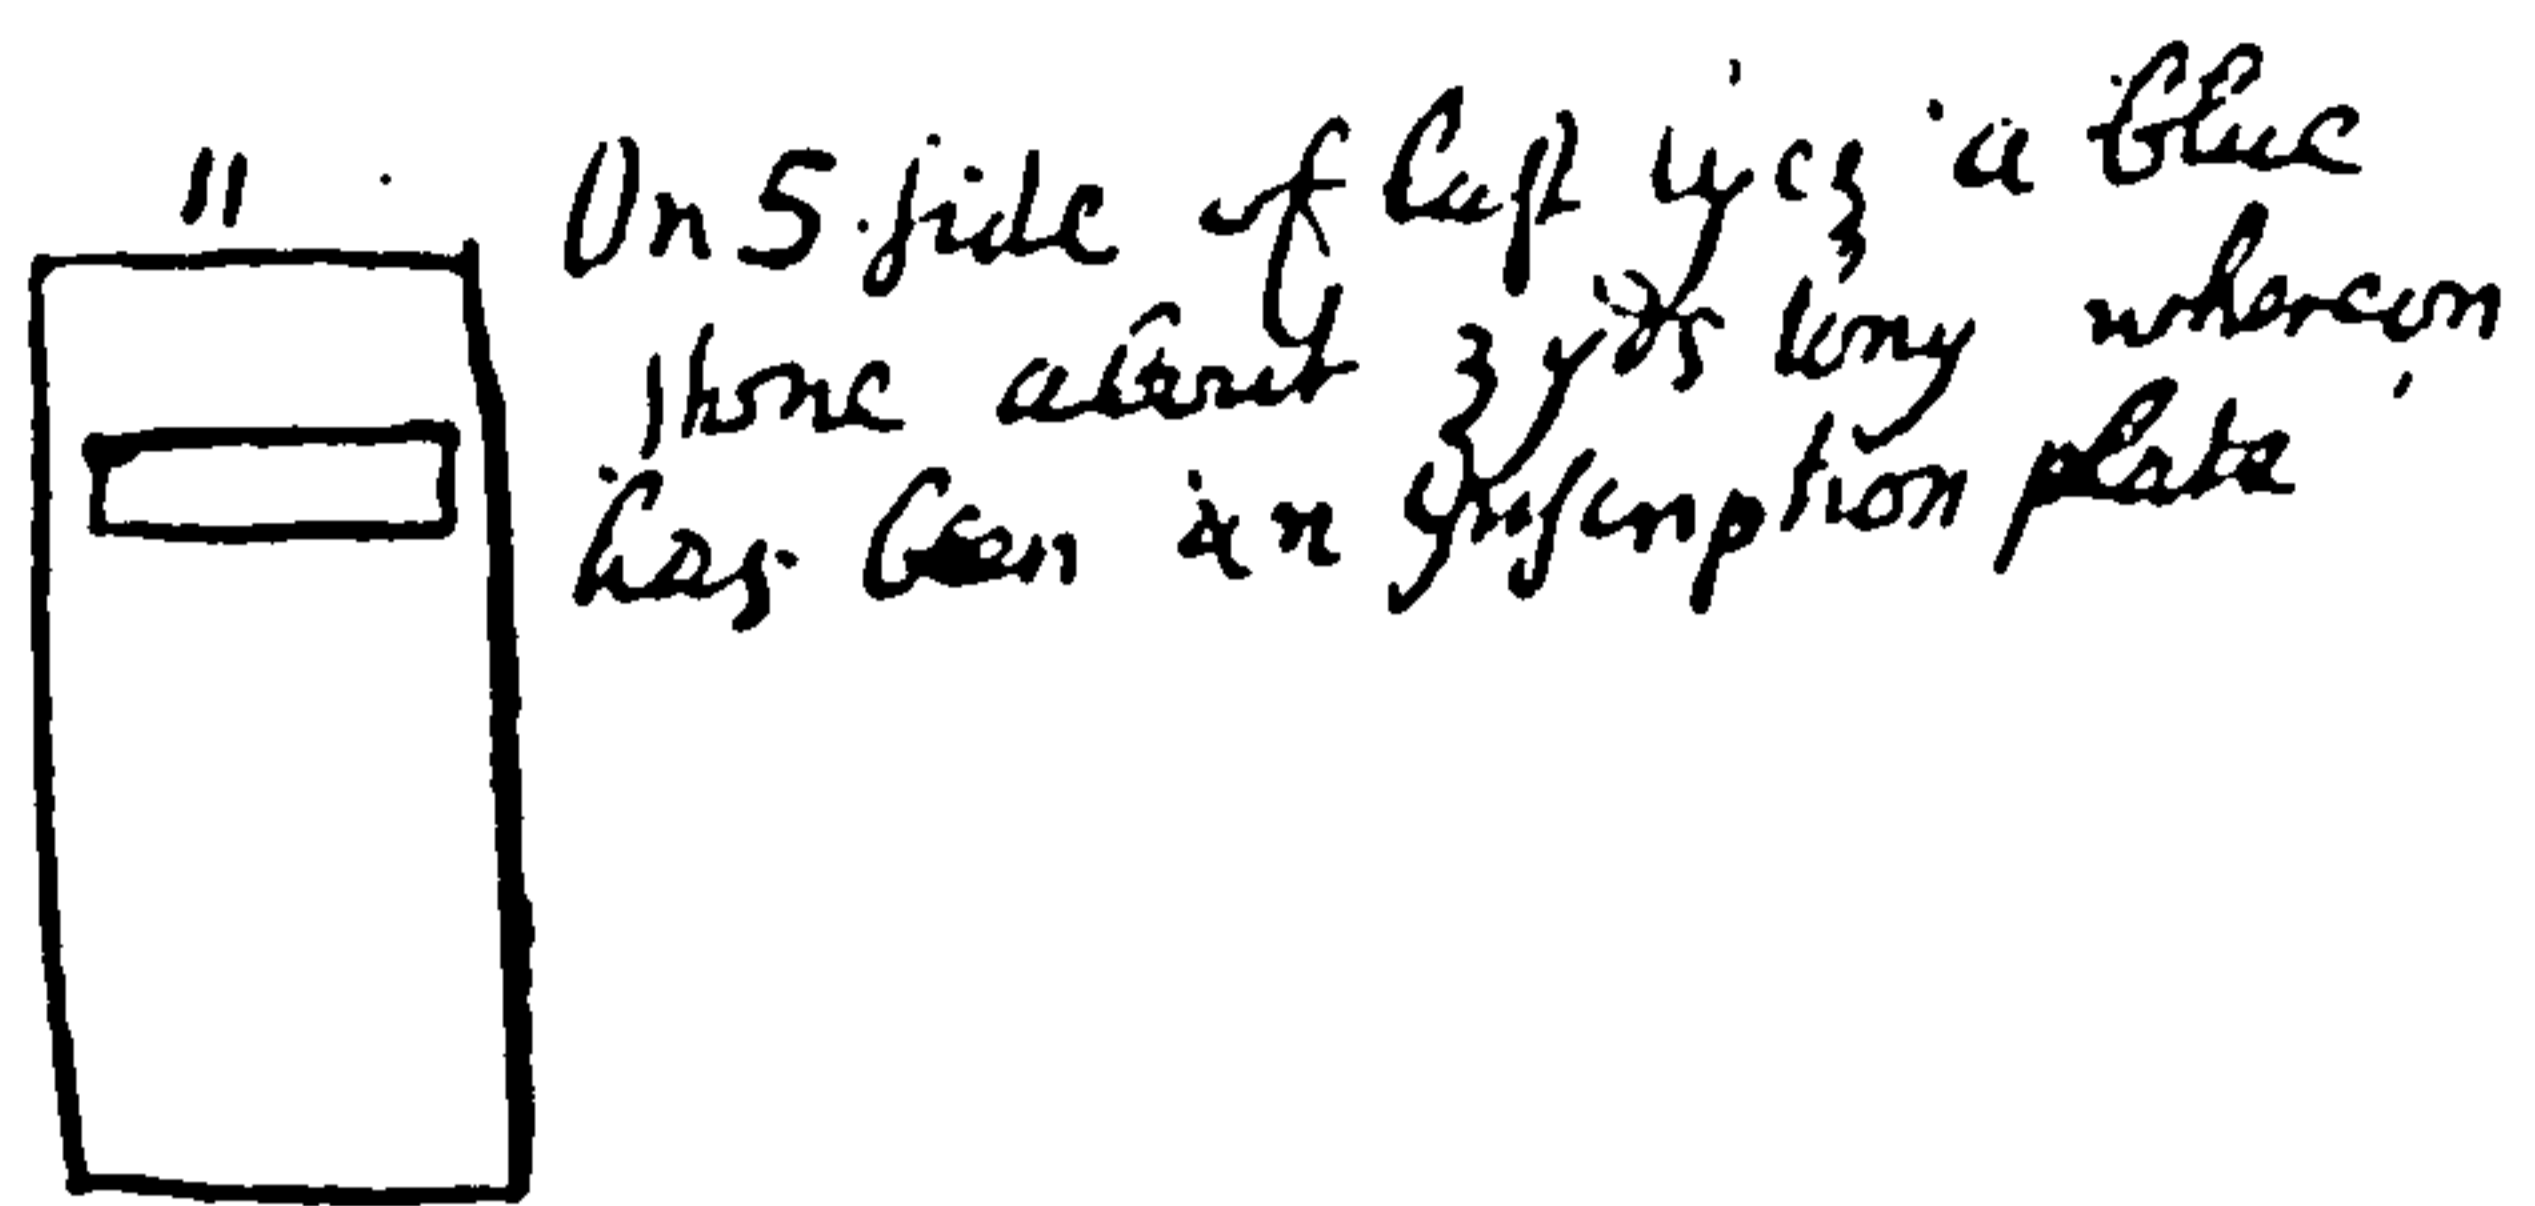 11
On S. side of last lyes a blue
stone about 3 yds long whereon
has been an Inscription plate